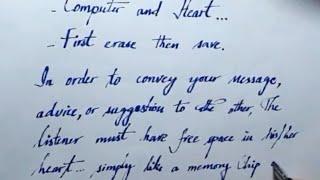 - Computer and Heart...
- First erase then save.
In order to convey your message,
advice, or suggestion to the other, The
listener must have free space in his/her
heart... simply like a memory chip